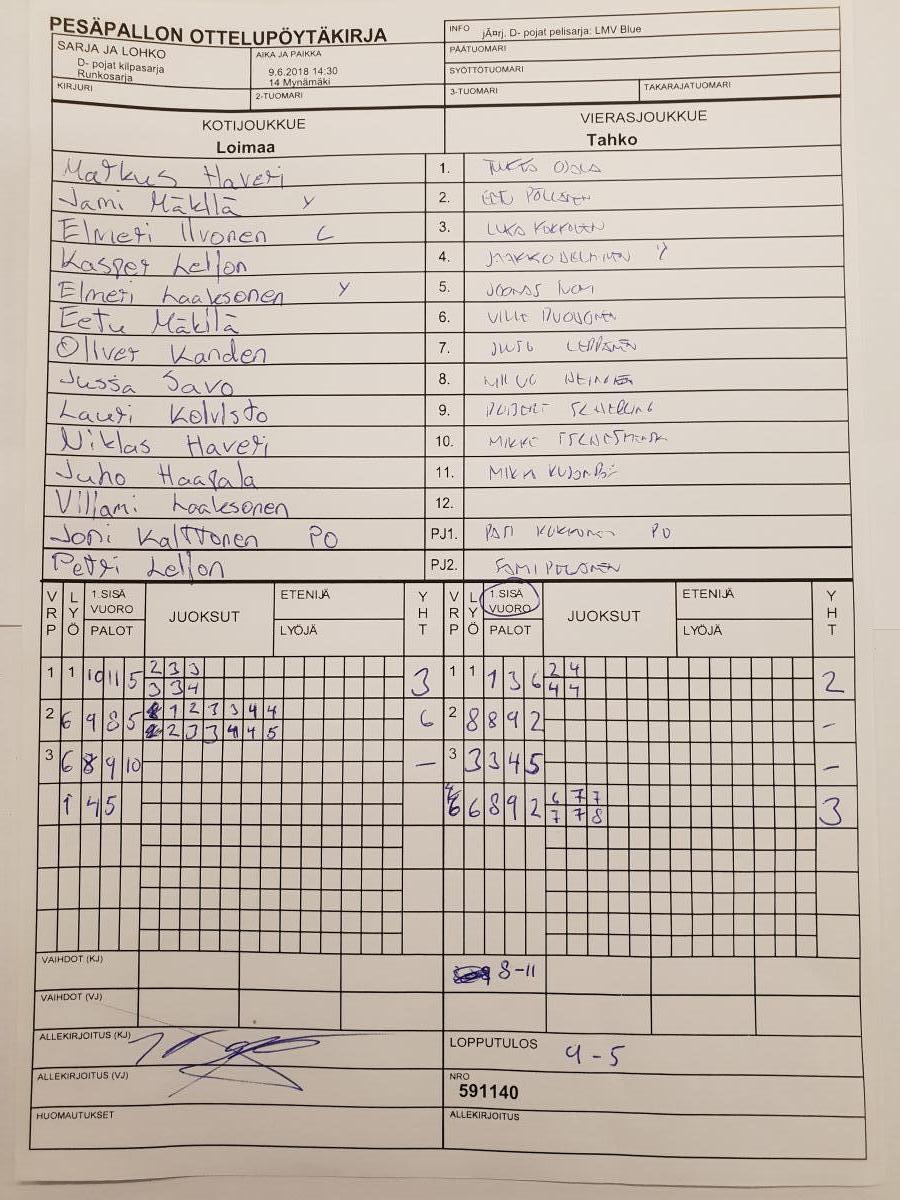 PESÄPALLON OTTELUPÖYTÄKIRJA
INFO jÄ¤rj. D- pojat pelisarja: LMV Blue
SARJA JA LOHKO
D- pojat kilpasarja
Runkosarja
AIKA JA PAIKKA
9.6.2018 14:30
14 Mynämäki
PÄÄTUOMARI
SYÖTTÖTUOMARI
KIRJURI
2-TUOMARI
3-TUOMARI
TAKARAJATUOMARI
KOTIJOUKKUE
Loimaa
VIERASJOUKKUE
Tahko
Markus Haveri 1.
Jami Mäkilä Y 2.
Elmeri Ilvonen L 3. LUKA KOKKONEN
Kasper Leijon 4. JAAKKO
Elmeri Laaksonen Y 5. JOONAS
Eetu Mäkilä 6. VILLE
Oliver Kanden 7. LEPPÄNEN
Jussa Savo 8.
Lauri Koivisto 9.
Niklas Haveri 10.
Juho Haapala 11. MIKA
Viljami Laaksonen 12.
Joni Kalttonen PO PJ1. KUKKONEN PO
Petri Leijon PJ2.
VRP LYÖ 1.SISÄ VUORO PALOT JUOKSUT ETENIJÄ LYÖJÄ YHT VRP LYÖ 1.SISÄ VUORO PALOT JUOKSUT ETENIJÄ LYÖJÄ YHT
1 1 10 11 5 2 3 3 3 1 1 1 3 6 2 4 2
3 3 4 4 4
2 6 9 8 5 1 2 3 3 4 4 6 2 8 8 9 2 -
2 3 3 4 4 5
3 6 8 9 10 - 3 3 3 4 5 -
1 4 5 6 8 9 2 6 7 7 3
7 7 8
VAIHDOT (KJ) 8-11
VAIHDOT (VJ)
ALLEKIRJOITUS (KJ)
LOPPUTULOS 9-5
ALLEKIRJOITUS (VJ)
NRO
591140
HUOMAUTUKSET
ALLEKIRJOITUS